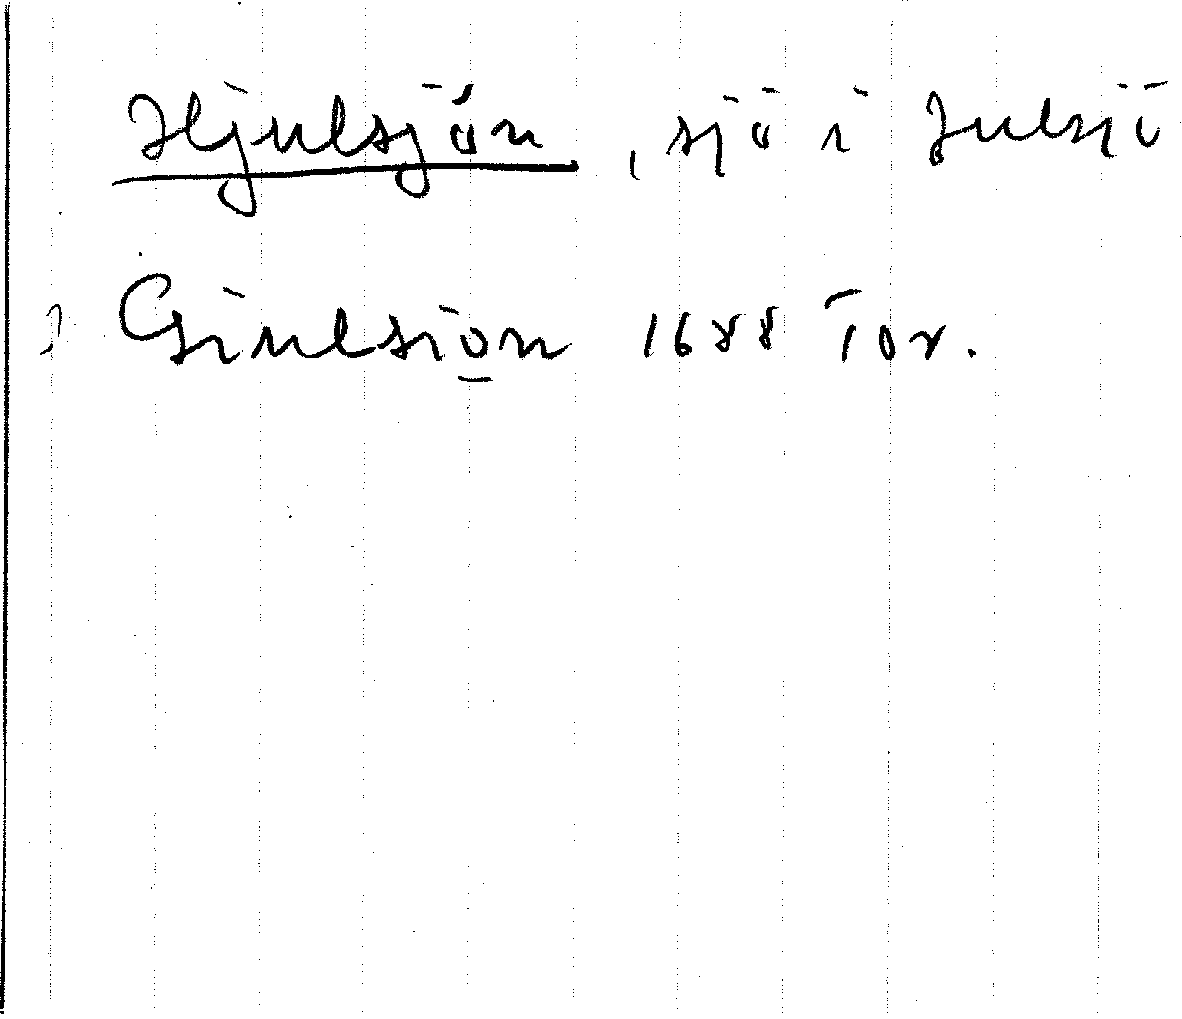 Hjulsjön, sjö i Julsjö
? Giulsiön 1688 Tor.